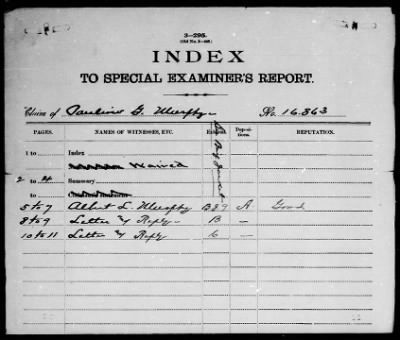 3—295.
INDEX
TO SPECIAL EXAMINER'S REPORT.
Claim of Pauline G. Murphy No. 16.863
PAGES. NAMES OF WITNESSES, ETC. Exhibit. Depositions. REPUTATION.
1 to Index
Waived
2 to 4 Summary
5 to 7 Albert L. Murphy A Good
8 to 9 Letter & Reply B —
10 to 11 Letter & Reply C —